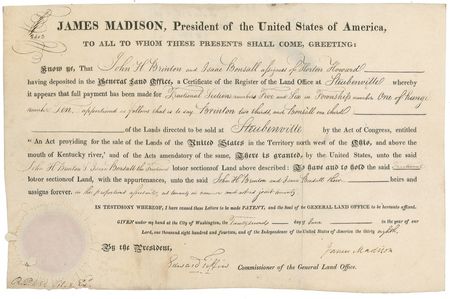 JAMES MADISON, President of the United States of America,
TO ALL TO WHOM THESE PRESENTS SHALL COME, GREETING:
Know ye, That John H Brinton and Isaac Bonsall assignees of Horton Howard
having deposited in the General Land Office, a Certificate of the Register of the Land Office at Steubenville whereby
it appears that full payment has been made for Fractional Section numbers Five and Six in Township number One of Range
number Ten, apportioned as follows that is to say Brinton two thirds and Bonsall one third
of the Lands directed to be sold at Steubenville by the Act of Congress, entitled
"An Act providing for the sale of the Lands of the United States in the Territory north west of the Ohio, and above the
mouth of Kentucky river," and of the Acts amendatory of the same, There is granted, by the United States, unto the said
John H Brinton & Isaac Bonsall the lot or section of Land above described: To have and to hold the said fractional
lot or section of Land, with the appurtenances, unto the said John H Brinton and Isaac Bonsall their heirs and
assigns forever, in the proportions aforesaid, as tenants in common and not as joint tenants.
IN TESTIMONY WHEREOF, I have caused these Letters to be made PATENT, and the Seal of the GENERAL LAND OFFICE to be hereunto affixed.
GIVEN under my hand at the City of Washington, the day of June in the year of our
Lord, one thousand eight hundred and fourteen, and of the Independence of the United States of America the thirty eighth.
By the President,
James Madison
Edward Tiffin Commissioner of the General Land Office.